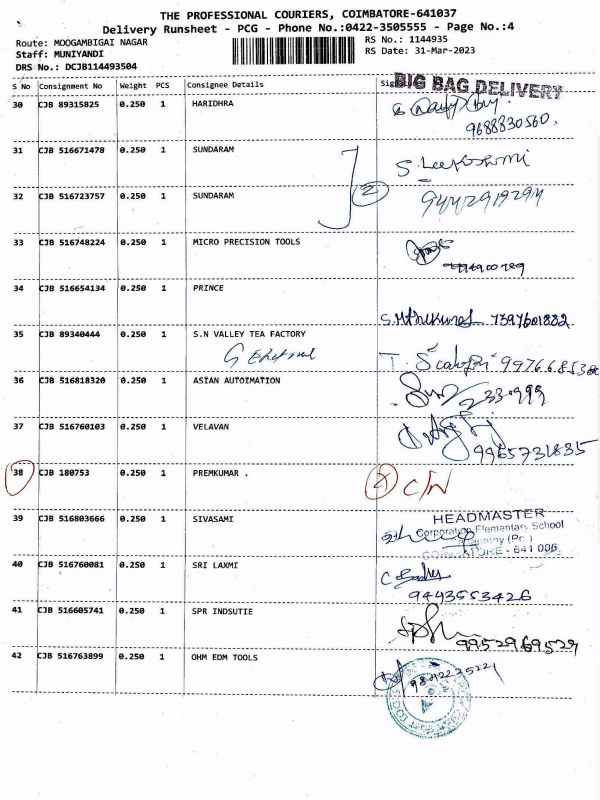 THE PROFESSIONAL COURIERS, COIMBATORE-641037
Delivery Runsheet - PCG - Phone No.:0422-3505555 - Page No.:4
Route: MOOGAMBIGAI NAGAR
RS No.: 1144935
Staff: MUNIYANDI
RS Date: 31-Mar-2023
DRS No.: DCJB114493504
S No Consignment No Weight PCS Consignee Details
BIG BAG DELIVERY
30 CJB 89315825 0.250 1 HARIDHRA
9688830560.
31 CJB 516671478 0.250 1 SUNDARAM
2
32 CJB 516723757 0.250 1 SUNDARAM
9442919294
33 CJB 516748224 0.250 1 MICRO PRECISION TOOLS
34 CJB 516654134 0.250 1 PRINCE
7397601882
35 CJB 89340444 0.250 1 S.N VALLEY TEA FACTORY
36 CJB 516818320 0.250 1 ASIAN AUTOIMATION
37 CJB 516760103 0.250 1 VELAVAN
9965731835
38 CJB 180753 0.250 1 PREMKUMAR .
C/N
39 CJB 516803666 0.250 1 SIVASAMI
HEADMASTER
Corporation Elementary School
- 641 006
40 CJB 516760081 0.250 1 SRI LAXMI
9443553426
41 CJB 516605741 0.250 1 SPR INDSUTIE
9952969529
42 CJB 516763899 0.250 1 OHM EDM TOOLS